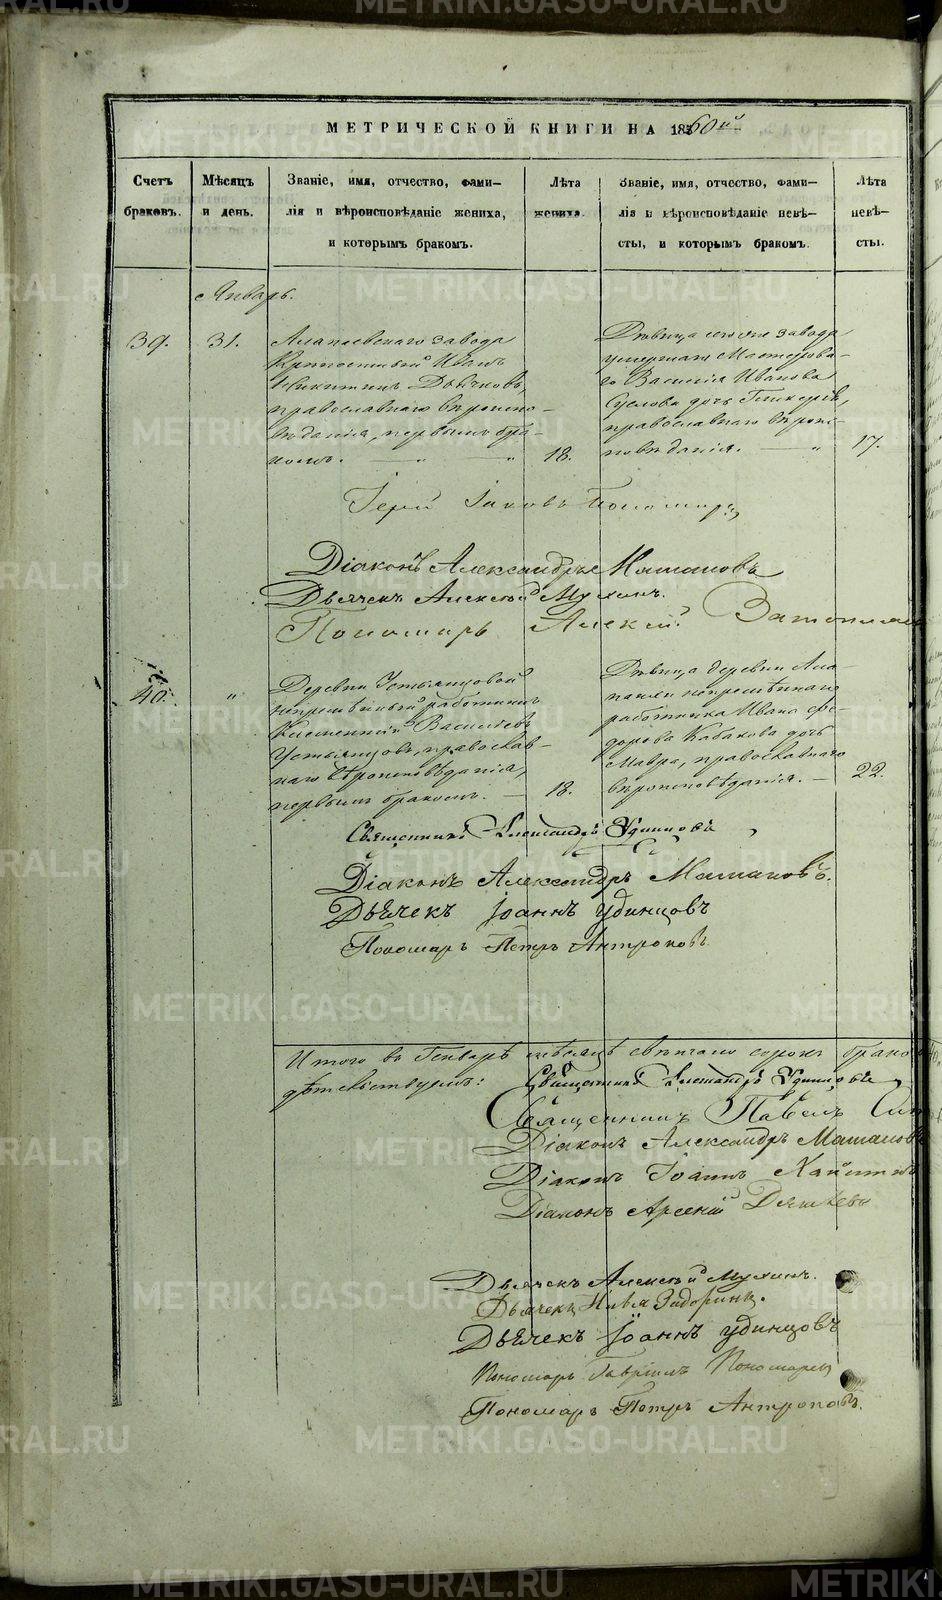 МЕТРИЧЕСКОЙ КНИГИ НА 1860й
Счетъ браковъ.
Мѣсяцъ и день.
Званіе, имя, отчество, фами-
лія и вѣроисповѣданіе жениха,
и которымъ бракомъ.
Лѣта жениха.
Званіе, имя, отчество, фами-
лія и вѣроисповѣданіе невѣ-
сты, и которымъ бракомъ.
Лѣта невѣ-
сты.
Январь.
39.
31.
Алапаевскаго завода
Крѣпостной Иванъ
Никитинъ Дьячковъ,
православнаго вѣроиспо-
вѣданія, первымъ бра-
комъ. — " "
18.
Дѣвица сего же завода
умершаго Мастерова-
го Василія Иванова
Суслова дочь Гликерія,
православнаго вѣроис-
повѣданія. — "
17.
Іерей Іаковъ Пономаревъ
Діаконъ Александръ Маталовъ
Дьячекъ Алексѣй Мухинъ.
Пономарь Алексій
40.
"
Деревни Устьянцовой
непремѣнный работникъ
Васильевъ
Устьянцовъ, православ-
наго вѣроисповѣданія,
первымъ бракомъ. —
18.
Дѣвица деревни Ала-
непремѣннаго
работника Ивана Фе-
дорова Кабакова дочь
Мавра, православнаго
вѣроисповѣданія. —
22.
Священникъ Александръ Удинцовъ
Діаконъ Александръ Маталовъ.
Дьячекъ Іоаннъ Удинцовъ
Пономарь Петръ Антроповъ
Итого въ Генварѣ мѣсяцѣ вѣнчано сорокъ браковъ
дѣтельствуемъ: Священникъ Александръ Удинцовъ
Священникъ Павелъ
Діаконъ Александръ Маталовъ
Діаконъ Іоаннъ
Діаконъ Арсеній
Дьячекъ Алексѣй Мухинъ.
Дьячекъ Задоринъ.
Дьячекъ Іоаннъ Удинцовъ
Пономарь Гавріилъ Пономаревъ
Пономарь Петръ Антроповъ.
METRIKI.GASO-URAL.RU